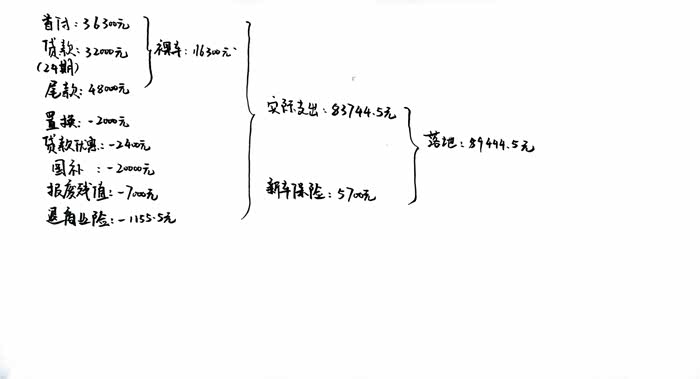 首付：36300元
贷款：32000元
(24期)
尾款：48000元
裸车：116300元
置换：-2000元
贷款优惠：-2400元
国补：-20000元
报废残值：-7000元
退商业险：-1155.5元
实际支出：83744.5元
新车保险：5700元
落地：89444.5元